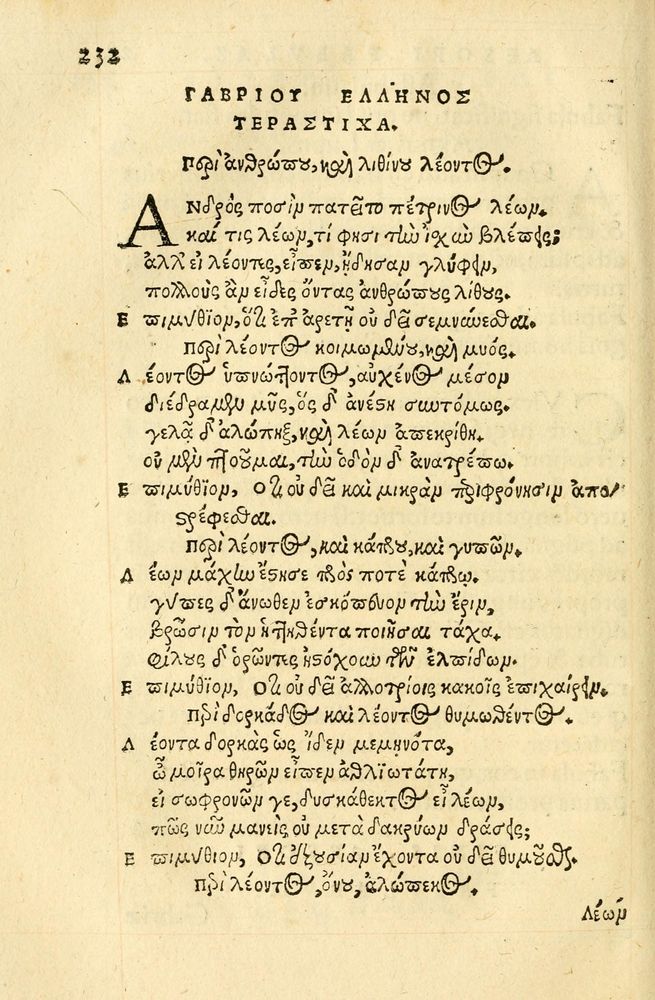 232
ΓΑΒΡΙΟΥ ΕΛΛΗΝΟΣ
ΤΕΡΑΣΤΙΧΑ.
Περὶ ἀνθρώπου, καὶ λιθίνου λέοντος.
ΑΝδρὸς ποσὶν πατεῖτο πέτρινος λέων.
καί τις λέων, τί φησι τὴν ἰσχὺν βλέπεις;
ἀλλ' εἰ λέοντες, εἶπεν, ᾔδησαν γλύφειν,
πολλοὺς ἂν εἶδες ὄντας ἀνθρώπους λίθους.
Επιμύθιον, ὅτι ἐπ' ἀρετῇ οὐ δεῖ σεμνύνεσθαι.
Περὶ λέοντος κοιμωμένου, καὶ μυός.
Λέοντος ὑπνώττοντος, αὐχένος μέσον
διέδραμεν μῦς, ὃς δ' ἀνέστη συντόμως.
γελᾷ δ' ἀλώπηξ, καὶ λέων ἀπεκρίθη.
οὐ μὲν πτοοῦμαι, τὴν ὁδὸν δ' ἀνατρέπω.
Επιμύθιον, Οτι οὐ δεῖ καὶ μικρὰν περιφρόνησιν ἀπο/
στρέφεσθαι.
Περὶ λέοντος, καὶ κάπρου, καὶ γυπῶν.
Λέων μάχην ἔστησε πρός ποτὲ κάπρῳ.
γύπες δ' ἄνωθεν ἐσκόπευον τὴν ἔριν,
βρῶσιν τὸν ἡττηθέντα ποιῆσαι τάχα.
φίλους δ' ὁρῶντες ἠστόχουν τῶν ἐλπίδων.
Επιμύθιον, Οτι οὐ δεῖ ἀλλοτρίοις κακοῖς ἐπιχαίρειν.
Περὶ δορκάδος καὶ λέοντος θυμωθέντος.
Λέοντα δορκὰς ὡς ἴδεν μεμηνότα,
ὦ μοῖρα θηρῶν εἶπεν ἀθλϊωτάτη,
εἰ σωφρονῶν γε, δυσκάθεκτος εἶ λέων,
πῶς νῦν μανεὶς οὐ μετὰ δακρύων δράσεις;
Επιμύθιον, Οτι ἐξουσίαν ἔχοντα οὐ δεῖ θυμοῦσθαι.
Περὶ λέοντος, ὄνου, ἀλώπεκος.
Λέων